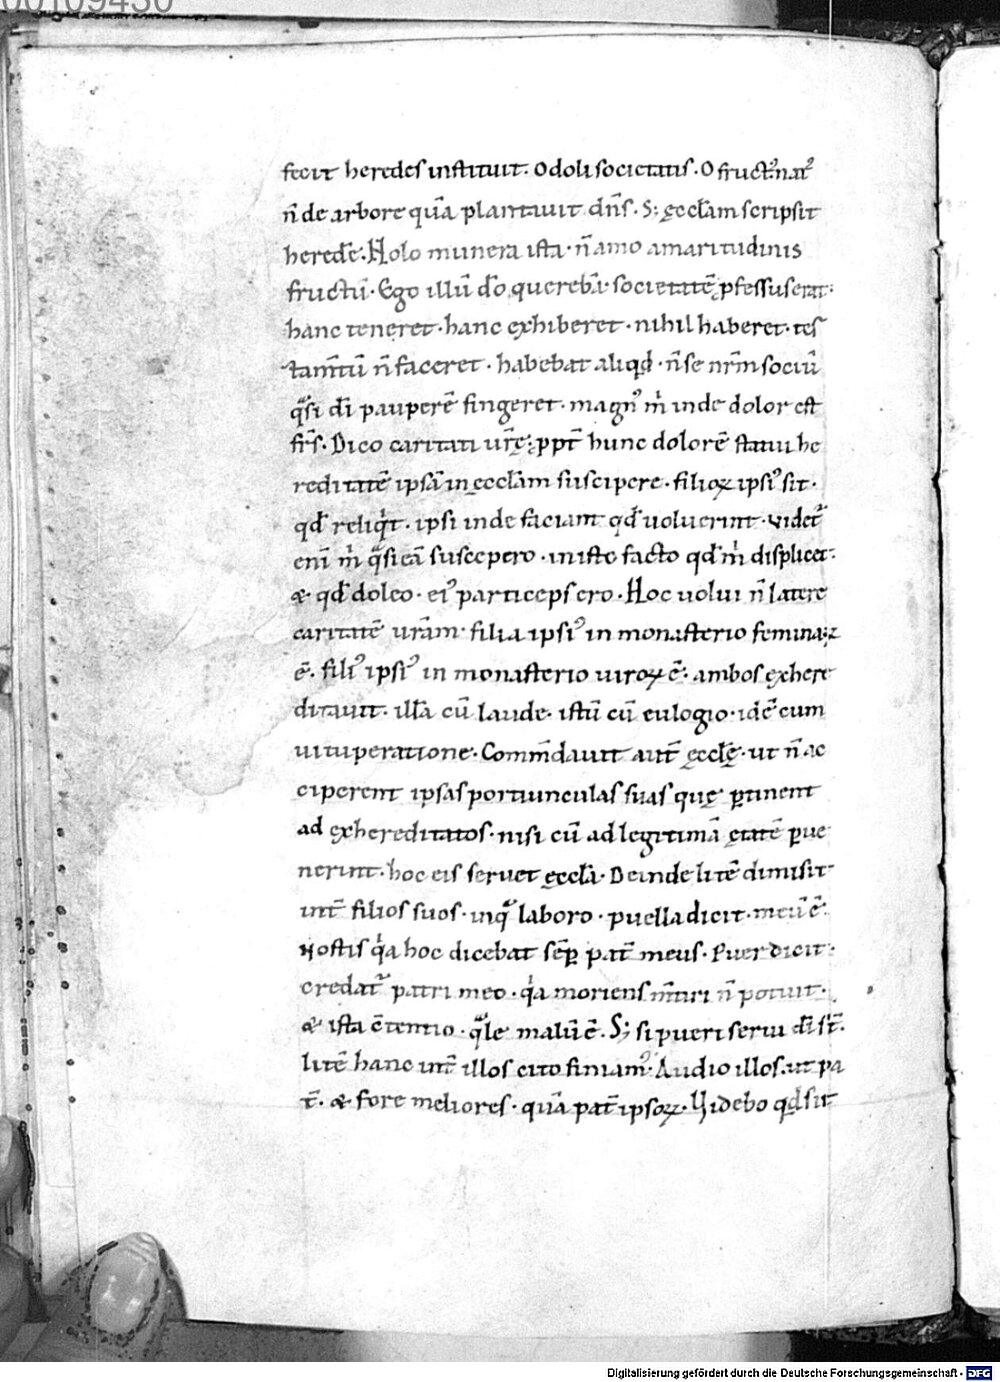 00109430
fecit heredes instituit· O doli societatis· O fructꝰ natꝰ
n̄ de arbore quā plantauit dn̄s. S; ęcclām scripsit
heredē. Nolo munera ista· n̄ amo amaritudinis
fructū· Ego illū dō querebā· societatē ꝓfessus erat·
hanc teneret· hanc exhiberet· nihil haberet· tes
tam̄tū n̄ faceret· habebat aliqd̄· n̄ se nrm̄ sociū
qͣsi dī pauperē fingeret· magnꝰ m̓ inde dolor est
fr̄s. Dico caritati urę̄· ꝓpt̄ hunc dolorē statui he
reditatē ipsā in ęcclām suscipere· filioꝝ ipsiꝰ sit·
qd̄ reliqͥt· ipsi inde faciant qd̄ uoluerint· videt᷑
enī m̓ qͣsi eā suscepero· in isto facto qd̄ m̓ displicet·
& qd̄ doleo· eiꝰ particeps ero· Hoc uolui n̄ latere
caritatē urām· filia ipsiꝰ in monasterio feminaꝝ
ē. filiꝰ ipsiꝰ in monasterio uiroꝝ ē· ambos exhere
ditauit· illā cū laude· istū cū eulogio· id ē cum
uituperatione· Comm̄dauit aut̄ ęcclę̄· ut n̄ ac
ciperent ipsas portiunculas suas quę ꝑtinent
ad exhereditatos· nisi cū ad legitimā ętatē ꝑue
nerint· hoc eis seruet ęcclā· Deinde litē dimisit
int̄ filios suos· in qͣ laboro· puella dicit· meū ē·
Nostis qͥa hoc dicebat sēꝑ pat̄ meus· Puer dicit·
credat᷑ patri meo· qͥa moriens m̄tiri n̄ potuit·
& ista c̄tentio· qͣle malū ē. S; si pueri serui dī st̄·
litē hanc int̄ illos cito finiamꝰ· Audio illos· ut pa
t̄· & fore meliores· quā pat̄ ipsoꝝ· Videbo qd̄ sit
Digitalisierung gefördert durch die Deutsche Forschungsgemeinschaft - DFG